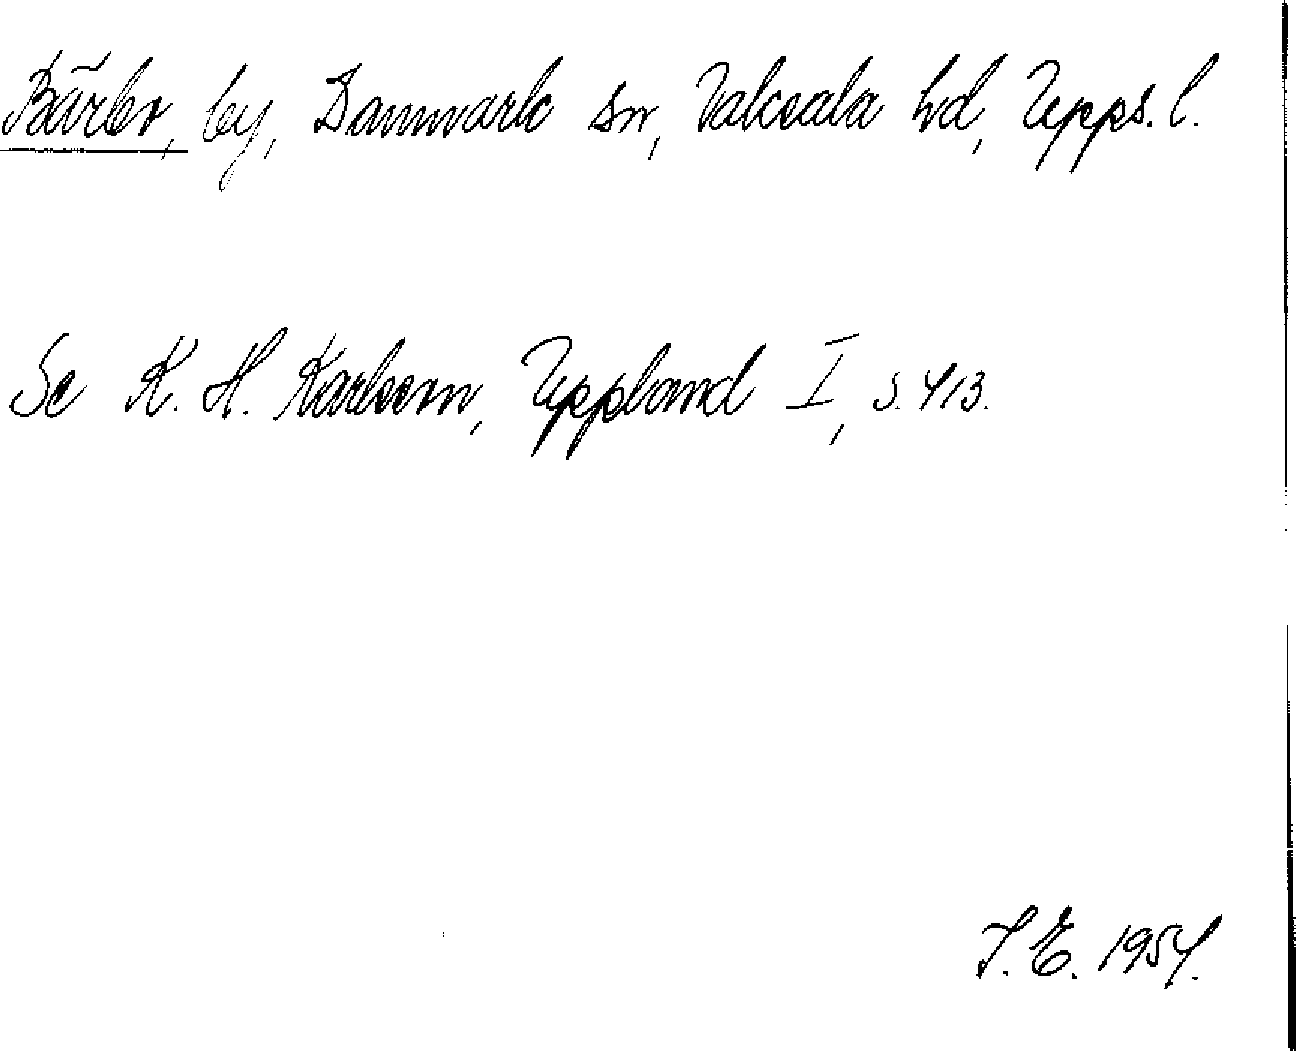 Bärbo, by, Danmark sn, Vaksala hd, Upps. l.
Se K. H. Karlsson, Uppland I, s. 413.
J. E. 1954.